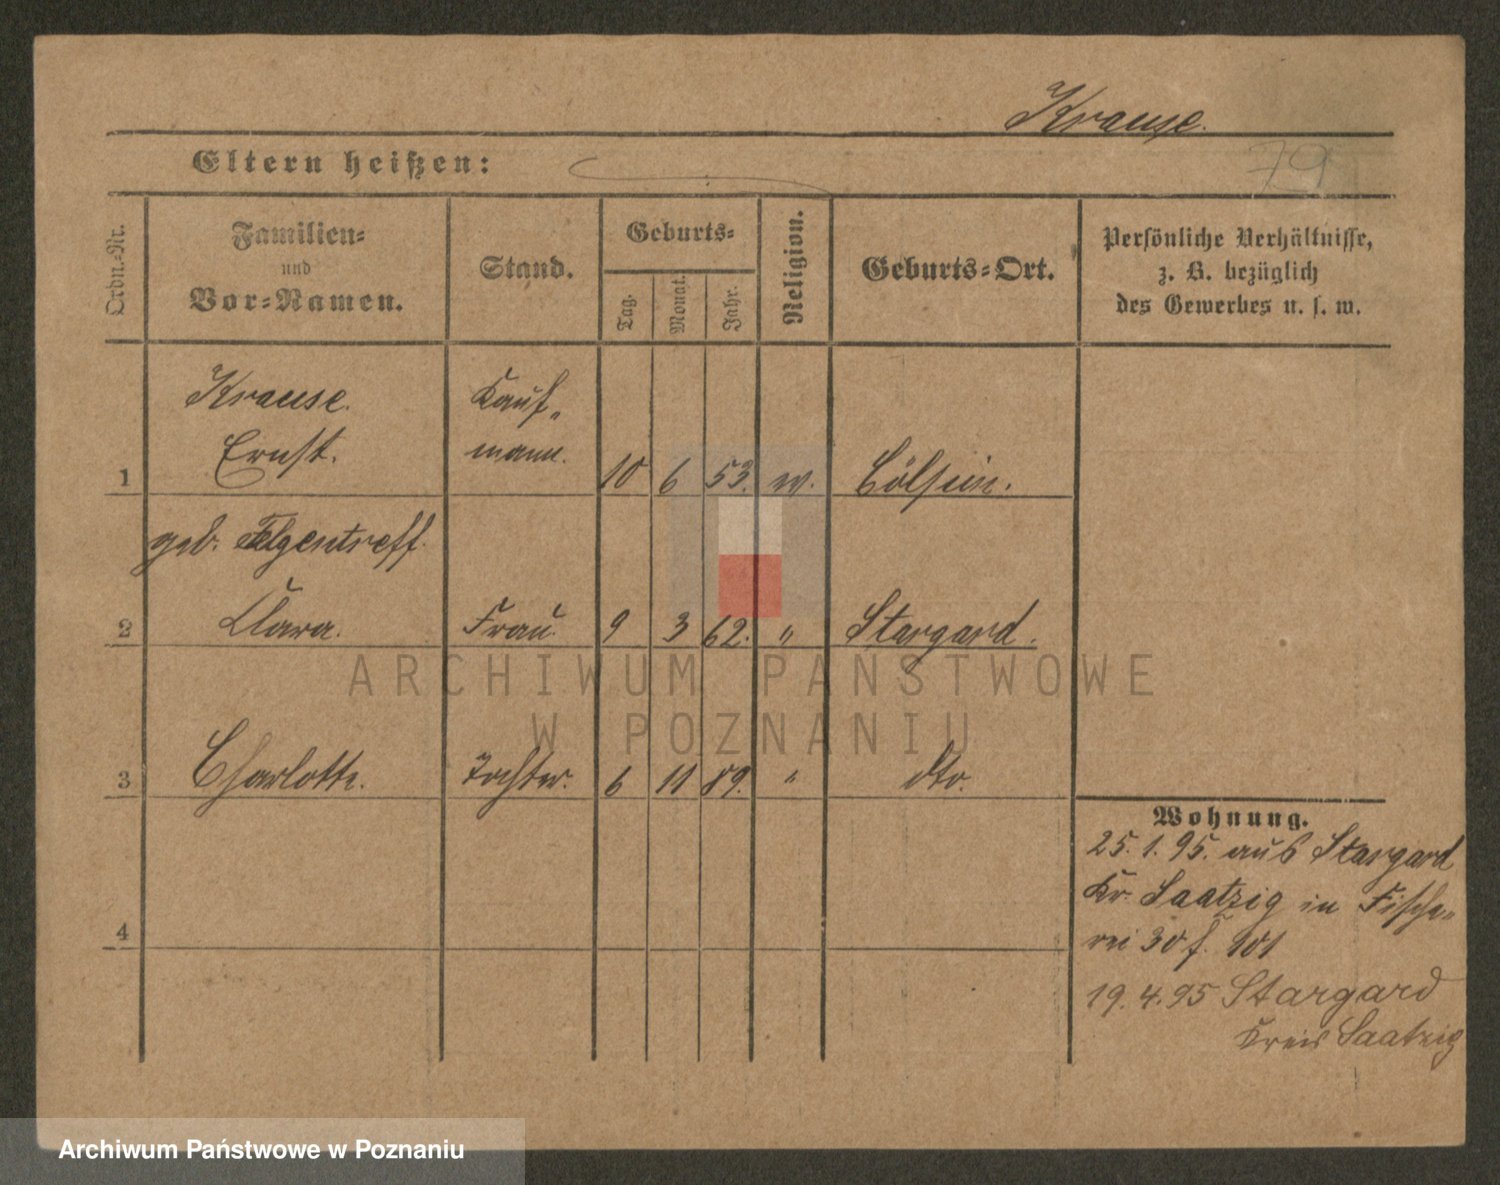 Krause.
79
Eltern heißen:
Ordn.-Nr.
Familien-
und
Vor-Namen.
Stand.
Geburts-
Tag.
Monat.
Jahr.
Religion.
Geburts-Ort.
Persönliche Verhältnisse,
z. B. bezüglich
des Gewerbes u. s. w.
Krause.
Ernst.
Kauf-
mann.
1
10 6 53.
geb. Felgentreff.
2 Clara. Frau. 9 3 62. " Stargard.
3 Charlotte. Tochter. 6 11 89. " dto.
4
Wohnung.
25.1.95. aus Stargard
Kr. Saatzig in Fische-
rei 30 f. 101
19.4.95 Stargard
Kreis Saatzig
ARCHIWUM PAŃSTWOWE
W POZNANIU
Archiwum Państwowe w Poznaniu